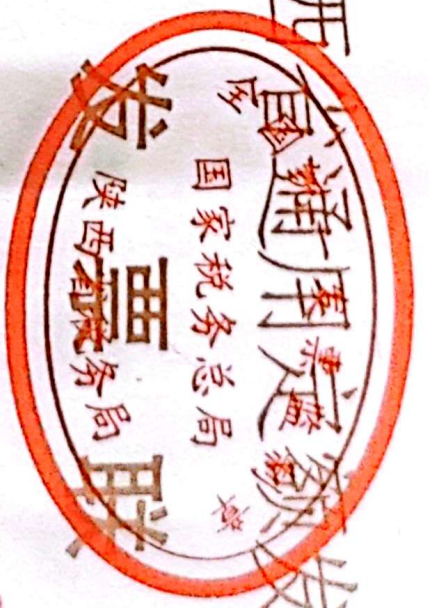 西省通用定额发
全国统一发票监制章
国家税务总局
陕西省税务局
发票联